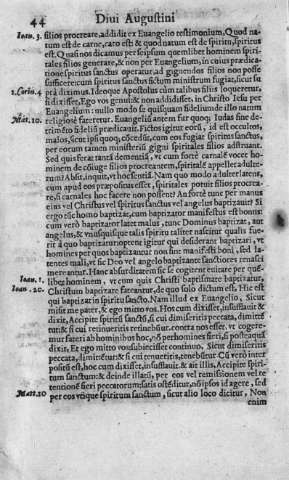 44 Diui Augustini
Ioan. 3. filios procreare, addidit ex Euangelio testimonium, Quod na-
tum est de carne, caro est: & quod natum est de spiritu, spiritus
est. Quasi nos dicamus per ipsum quemlibet hominem spiri-
tales filios generare, & non per Euangelium, in cuius prædica-
tione spiritus sanctus operatur, ad gignendos filios non posse
sufficere: cum spiritus sanctus fictum fugiat, sicut su-
1. Corin. 4 pra diximus. Ideoque Apostolus cùm talibus filiis loqueretur,
si dixisset, Ego vos genui: & non addidisset, in Christo Iesu per
Euangelium: nullo modo se quisquam fidelium de illo natum
Mat. 10. religiosè fateretur. Euangelium antem fur quoque Iudas sine de-
trimento fidelium prædicauit. Fictos igitur eorum, id est occultos
malos, sicut ipsi quoque concedunt, cùm eos fugiat spiritus sanctus,
per eorum tamen ministerium gigni spiritales filios adstruant.
Sed quis ferat tanta dementia, vt cùm fortè carnale vocet ho-
minem de coniuge filios procreantem, spiritalè appellet adulte-
rum? Absit, inquit, vt hoc sentiam. Nam quo modo adulter latens,
cum apud eos præpositus esset, spiritales potuit filios procrea-
re, si carnales hoc facere non possent? An fortè tunc per manus
eius vel Christus vel spiritus sanctus vel angelus baptizauit? Si
ergo tunc homo baptizat, cum baptizator manifestus est bonus:
cum verò baptizator latet malus, tunc Dominus baptizat, aut
angelus, & vnusquisque talis spiritu taliter nascitur qualis fue-
rit à quo baptizatur: optent igitur qui desiderant baptizari, vt
homines per quos baptizantur non sint manifesti boni, sed la-
tentes mali, vt sic Deo vel angelo baptizante sanctiores renasci
mereantur. Hanc absurditatem si cogitent euitare per quem-
Ioan. 1. libet hominem, vt cum quis Christi baptismate baptizatur,
Ioan. 20. Christum baptizare fateantur, de quo solo dictum est, Hic est
qui baptizat in spiritu sancto. Nam illud ex Euangelio, Sicut
misit me pater, & ego mitto vos. Hoc cum dixisset, insufflauit &
dixit, Accipite spiritum sanctum, si cui dimiseritis peccata, dimitte-
tur: & si cui retinueritis retinebitur. contra nos esset, vt cogere-
mur fateri ab hominibus hoc, non per homines fieri, si posteaquam
dixit, Et ego mitto vos: subiecisset continuo, Sicut dimiseritis
peccata, dimittetur: & si cui tenueritis, tenebitur. Cùm verò inter
positum est, hoc cum dixisset, insufflauit, & ait illis, Accipite spiri-
tum sanctum: & deinde illatum, per eos vel remissionem vel re-
tentionem fieri peccatorum: satis ostenditur, non ipsos id agere, sed
Matt. 10 per eos vtique spiritum sanctum, sicut alio loco dicitur, Non
enim